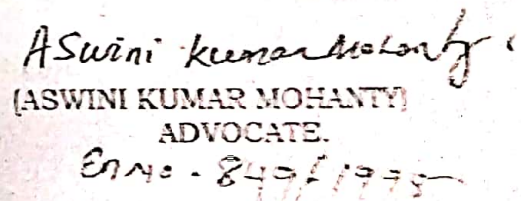 Aswini Kumar Mohanty
(ASWINI KUMAR MOHANTY)
ADVOCATE.
En No - 849/1995